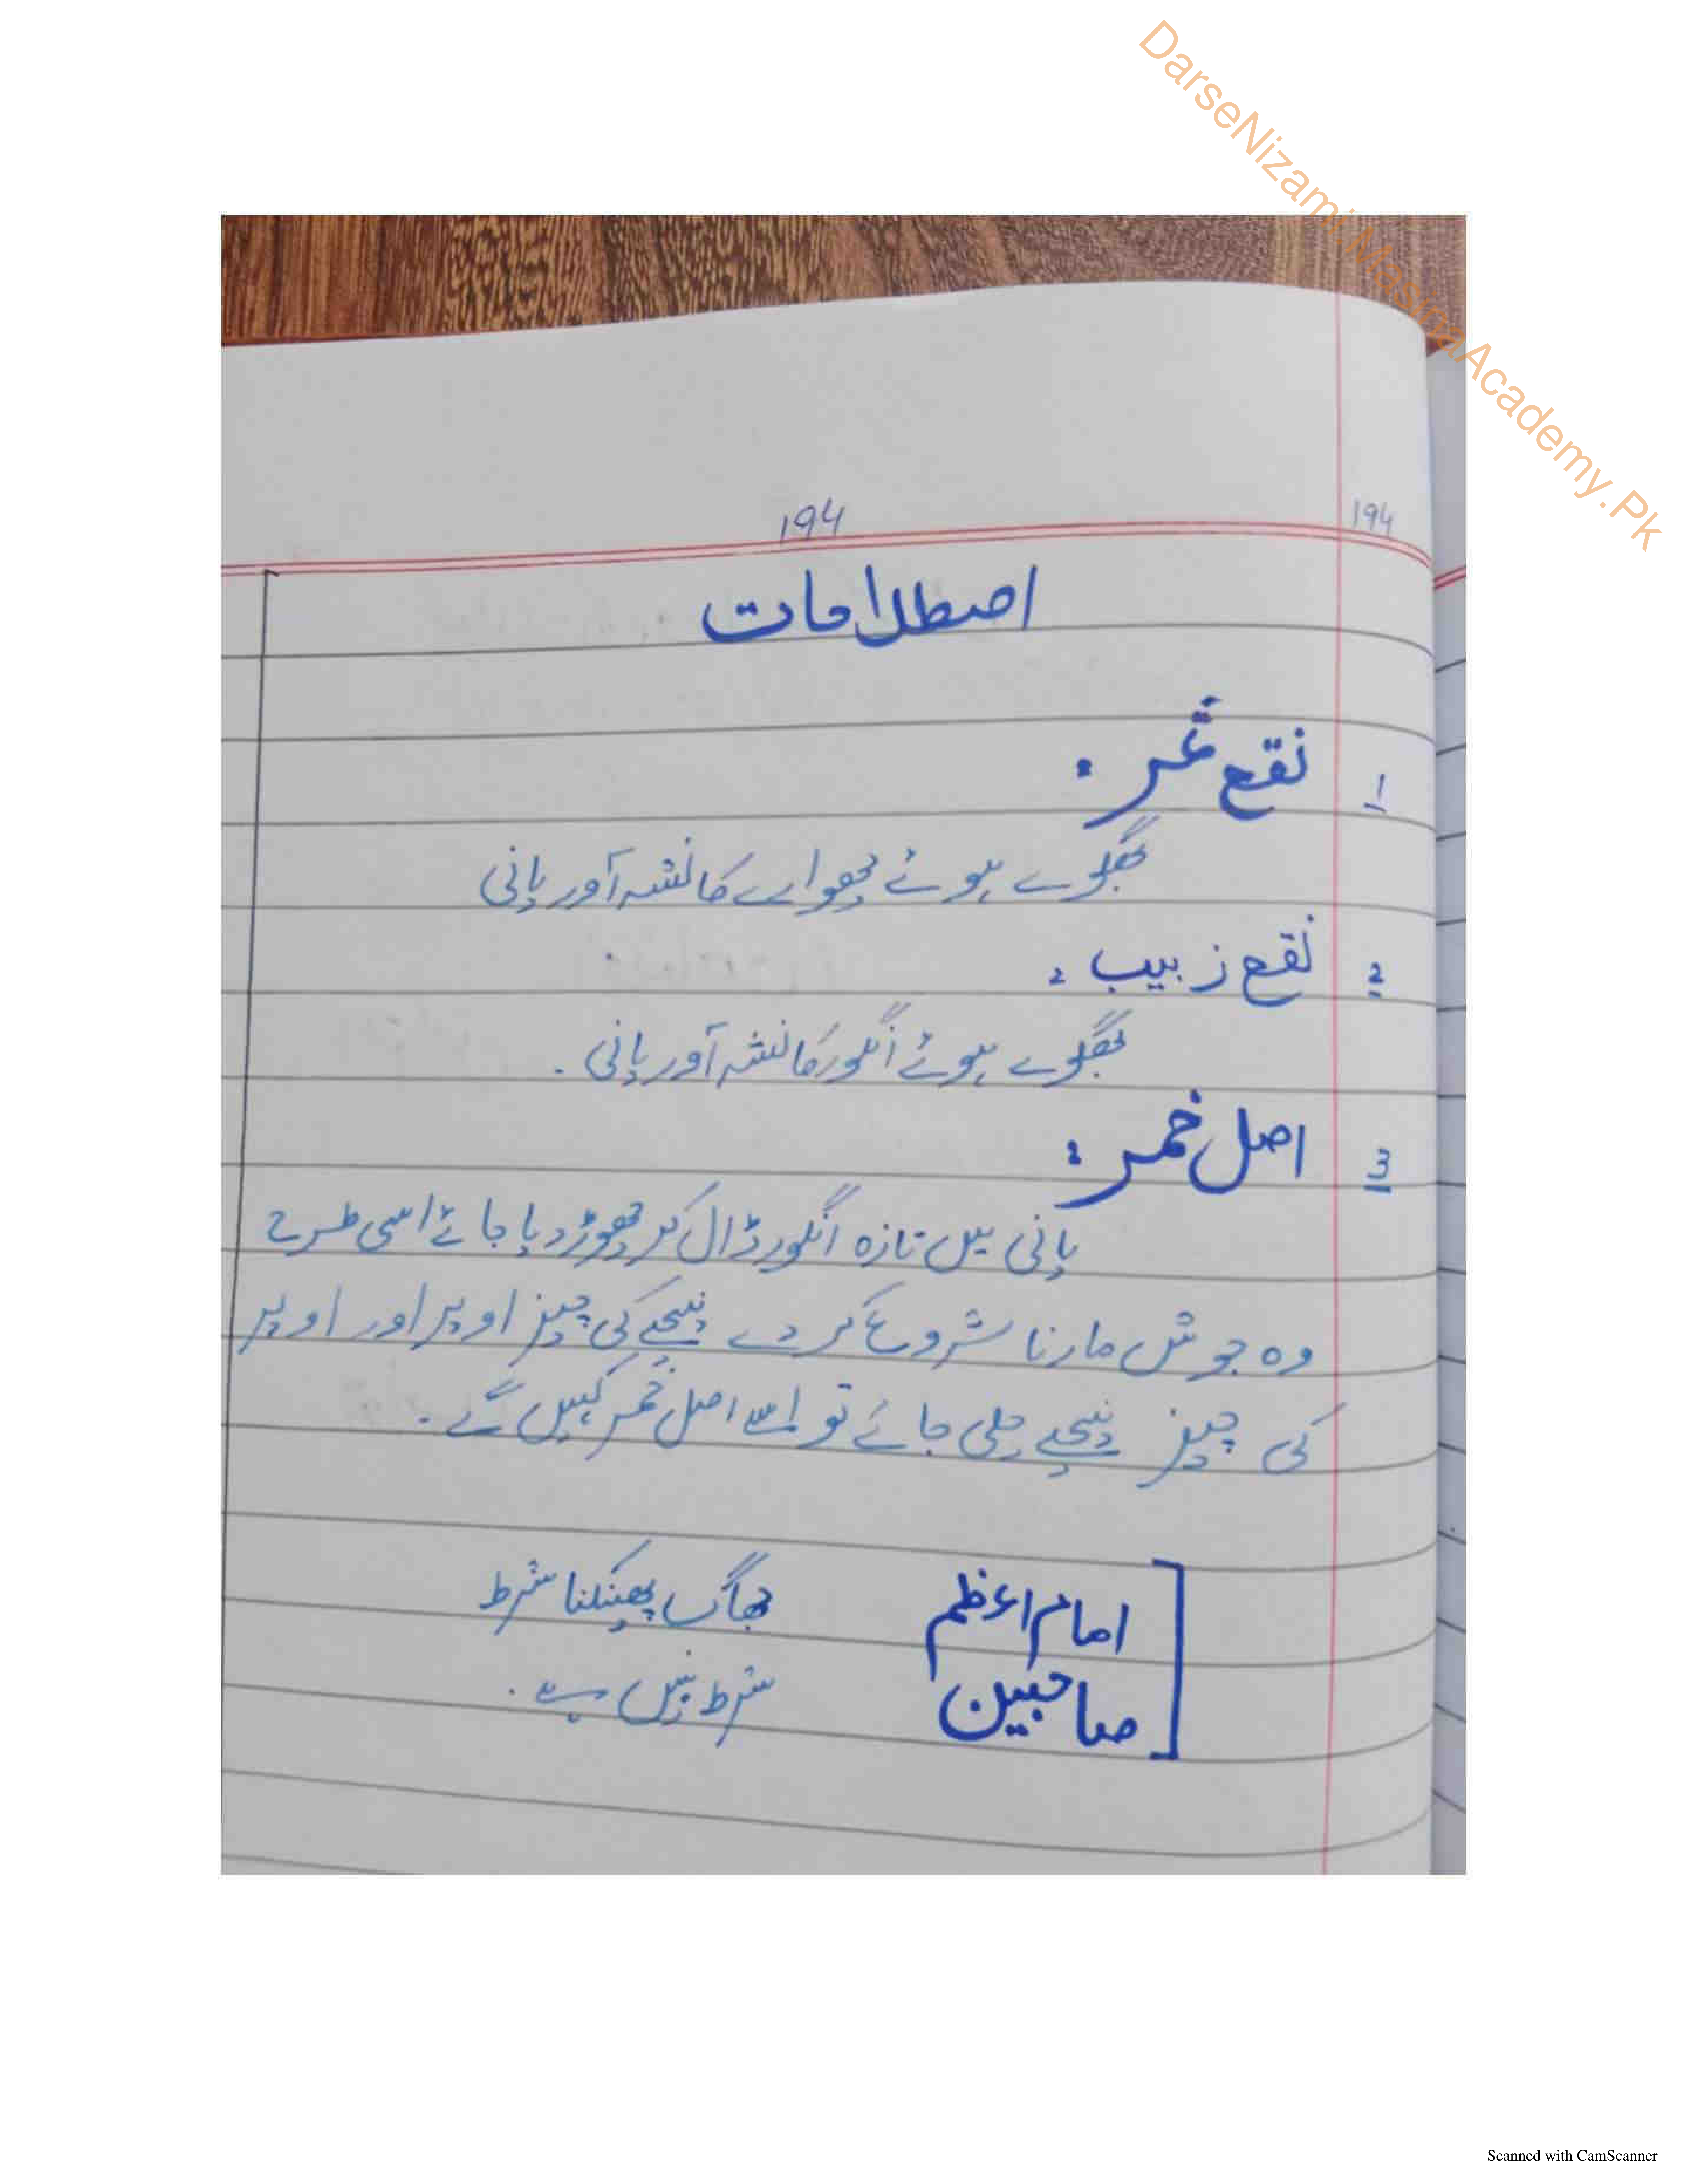 DarseNizami.MasnaAcademy.Pk
194 194
اصطلاحات
1 نقع تمر :
بھگوے ہوئے چھوارے کا نشہ آور پانی
2 نقع زبیب :
بھگوے ہوئے انگور کا نشہ آور پانی .
3 اصل خمر :
پانی میں تازہ انگور ڈال کر چھوڑ دیا جائے اسی طرح
وہ جوش مارنا شروع کر دے نیچے کی چیز اوپر اور اوپر
کی چیز نیچے چلی جائے تو اسے اصل خمر کہیں گے .
امام اعظم جھاگ پھینکنا شرط
صاحبین شرط نہیں ہے .
Scanned with CamScanner